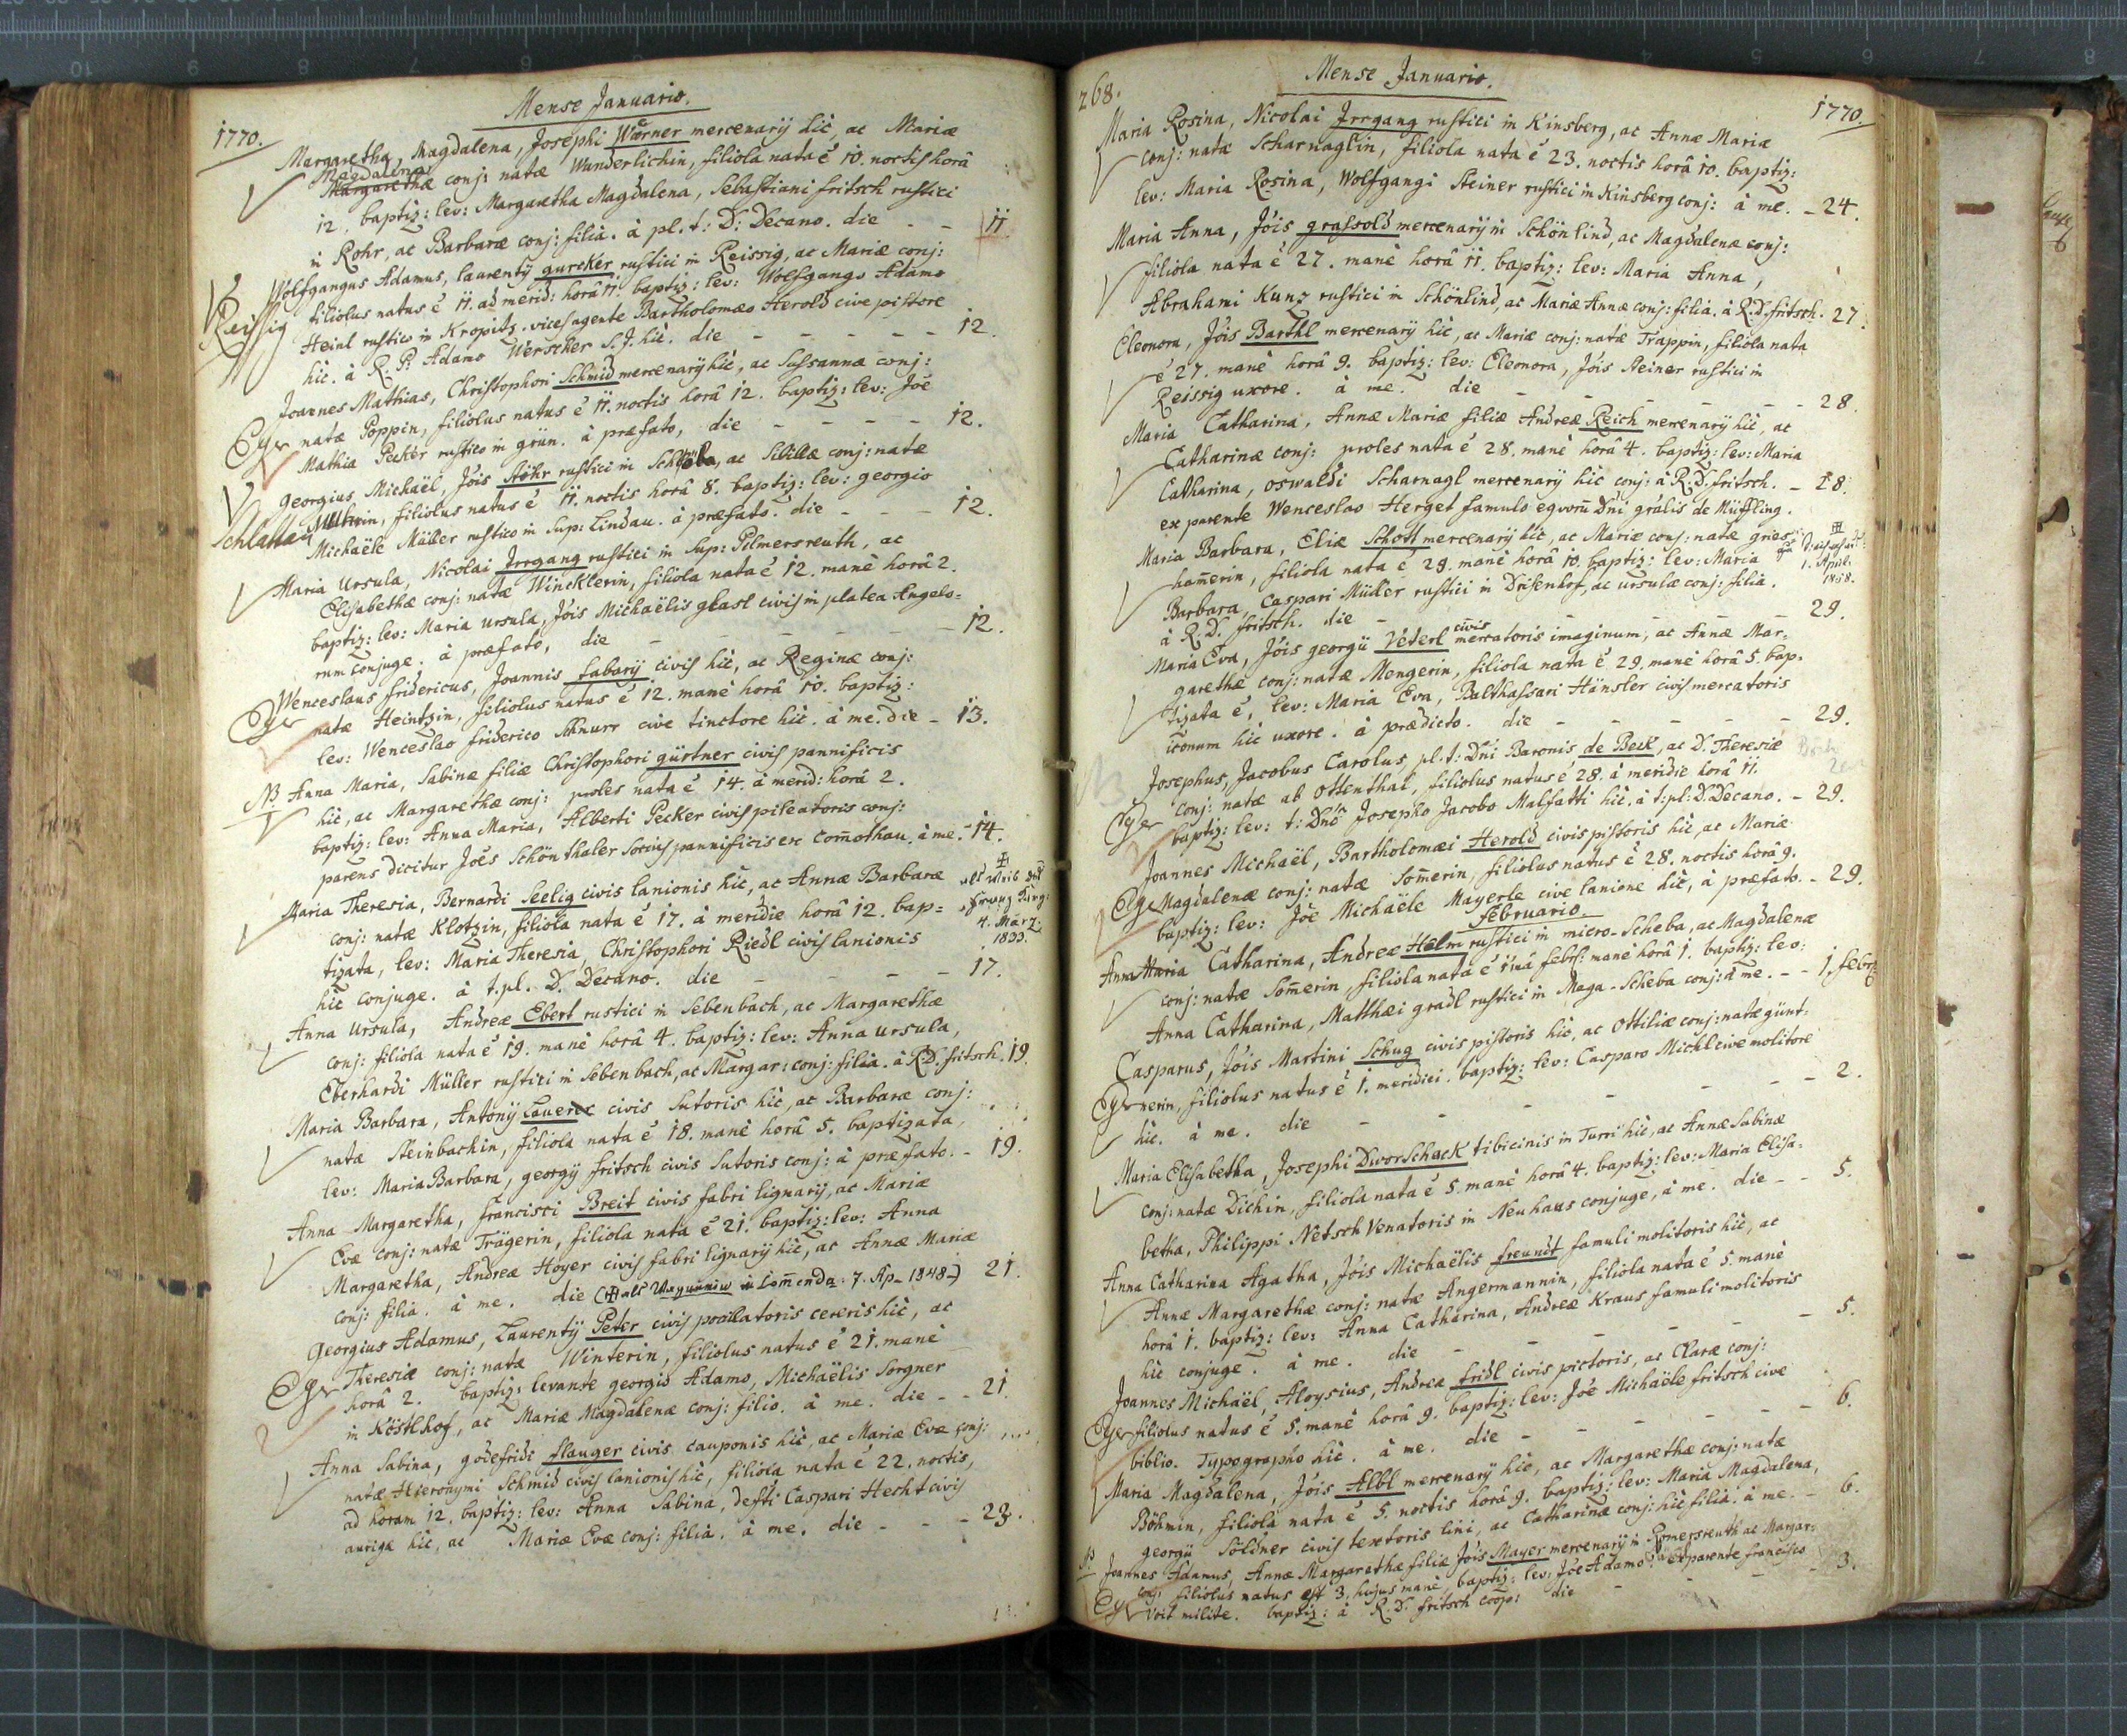 Mense Januario.
1770.
Margaretha, Magdalena, Josephi Wörner mercenarÿ hìc, ac Mariæ
Magdalena
Margarethæ conj: natæ Wunderlichin, filiola nata ē 10. noctis horâ
12. baptiz: lev: Margaretha Magdalena, Sebastiani fritsch rustici
in Rohr, ac Barbaræ conj: filia. à pl. t: D: Decano. die - - 11.
Wolfgangus Adamus, laurentÿ gurcker rustici in Reissig, ac Mariæ conj:
Reissig filiolus natus ē 11. ad merid: horâ 11. baptiz: lev: Wolfgango Adamo
Heinl rustico in Kropitz. vices agente Bartholomæo Herold cive pistore
hìc. à R. P. Adamo Werscher S. J. hìc. die - - - - - 12.
Joannes Mathias, Christophori Schmid mercenarÿ hìc, ac Sussannæ conj:
Eger natæ Poppin, filiolus natus ē 11. noctis horâ 12. baptiz: lev: Joē
Mathia Pecker rustico in grün. à præfato, die - - - - 12.
Georgius Michaël, Jōis Stöhr rustici in, ac Sibillæ conj: natæ
Schlatta, filiolus natus ē 11. noctis horâ 8. baptiz: lev: georgio
Michaële Müller rustico in Sup: Lindau. à præfato. die - - - 12.
Maria Ursula, Nicolai Jrrgang rustici in Sup: Pilmersreuth, ac
Elisabethæ conj: natæ Wincklerin, filiola nata ē 12. manè horâ 2.
baptiz: lev: Maria Ursula, Jōis Michaëlis glasl civis in platea Angelo=
rum conjuge. à præfato, die - - - - - 12.
Wenceslaus fridericus, Joannis fabarÿ civis hìc, ac Reginæ conj:
Eger natæ Heintzin, filiolus natus ē 12. manè horâ 10. baptiz:
lev: Wenceslao friderico Schnurr cive tinctore hìc. à me. die - 13.
NB Anna Maria, Sabinæ filiæ Christophori gürtner civis pannificis
hìc, ac Margarethæ conj: proles nata ē 14. à merid: horâ 2.
baptiz: lev: Anna Maria, Alberti Pecker civis pileatoris conj:
parens dicitur Joēs Schönthaler socius pannificis ex Com̄othau. à me. - 14.
Maria Theresia, Bernardi Seelig civis lanionis hìc, ac Annæ Barbaræ
4. März
1833.
conj: natæ Klotzin, filiola nata ē 17. à meridie horâ 12. bap=
tizata, lev: Maria Theresia, Christophori Riedl civis lanionis
hìc conjuge. à t. pl. D. Decano. die - - - - 17.
Anna Ursula, Andreæ Ebert rustici in Sebenbach, ac Margarethæ
conj: filiola nata ē 19. manè horâ 4. baptiz: lev: Anna Ursula,
Eberhardi Müller rustici in Sebenbach, ac Margar: conj: filia. à R. D. fritsch. 19.
Maria Barbara, Antonÿ civis Sutoris hìc, ac Barbaræ conj:
natæ Steinbachin, filiola nata ē 18. manè horâ 5. baptizata,
lev: Maria Barbara, georgÿ fritsch civis Sutoris conj: à præfato. - 19.
Anna Margaretha, francisci Breit civis fabri lignarÿ, ac Mariæ
Evæ conj: natæ Trägerin, filiola nata ē 21. baptiz: lev: Anna
Margaretha, Andreæ Hoyer civis fabri lignarÿ hìc, ac Annæ Mariæ
conj: filia. à me. die (als in Com̄enda. 7. Ap. 1848.) 21.
Georgius Adamus, Laurentÿ Peter civis pocillatoris cereris hìc, ac
Eger Theresiæ conj: natæ Winterin, filiolus natus ē 21. manè
horâ 2. baptiz: levante georgio Adamo, Michaëlis Sorgner
in Köstlhof, ac Mariæ Magdalenæ conj: filio. à me. die - - 21.
Anna Sabina, godefridi stauger civis cauponis hìc, ac Mariæ Evæ conj:
natæ Hieronymi Schmid civis lanionis hìc, filiola nata ē 22. noctis,
ad horam 12. baptiz: lev: Anna Sabina, defti Caspari Hecht civis
aurigæ hìc, ac Mariæ Evæ conj: filia. à me. die - - - 23.
268.
Mense Januario.
1770.
Maria Rosina, Nicolai Jrrgang rustici in Kinsberg, ac Annæ Mariæ
conj: natæ Scharnaglin, filiola nata ē 23. noctis horâ 10. baptiz:
lev: Maria Rosina, Wolfgangi Steiner rustici in Kinsberg conj: à me. - 24.
Maria Anna, Jōis grassold mercenarÿ in Schönlind, ac Magdalenæ conj:
filiola nata ē 27. manè horâ 11. baptiz: lev: Maria Anna,
Abrahami Kunz rustici in Schönlind, ac Mariæ Annæ conj: filia. à R. D. fritsch. 27.
Eleonora, Jōis Barthl mercenarÿ hìc, ac Mariæ conj: natæ Trappin, filiola nata
ē 27. manè horâ 9. baptiz: lev: Eleonora, Jōis Steiner rustici in
Reissig uxore. à me. die - - - - - 28.
Maria Catharina, Annæ Mariæ filiæ Andreæ Reich mercenarÿ hìc, ac
Catharinæ conj: proles nata ē 28. manè horâ 4. baptiz: lev: Maria
Catharina, oswaldi Scharnagl mercenarÿ hìc conj: à R. D. fritsch. - 28.
ex parente Wenceslao Herget famulo eqvorū Dn̄i grālis de Müffling.
Maria Barbara, Eliæ Schott mercenarÿ hìc, ac Mariæ conj: natæ gries=
1. April
1858.
ham̄erin, filiola nata ē 29. manè horâ 10. baptiz: lev: Maria
Barbara, Caspari Müller rustici in Drisenhof, ac ursulæ conj: filia.
à R. D. fritsch. die - - - - - 29.
civis
Maria Eva, Jōis georgÿ Véterl mercatoris imaginum, ac Annæ Mar=
garethæ conj: natæ Mengerin, filiola nata ē 29. manè horâ 5. bap=
tizata ē, lev: Maria Eva, Balthassari Hänsler civis mercatoris
iconum hìc uxore. à prædicto. die - - - - 29.
Josephus, Jacobus Carolus, pl. t: Dn̄i Baronis de Beck, ac D. Theresiæ
conj: natæ ab Ottenthal, filiolus natus ē 28. à meridie horâ 11.
Eger baptiz: lev: t: Dn̄o Josepho Jacobo Malfatti hìc. à t: pl: D. Decano. - 29.
Joannes Michaël, Bartholomæi Herold civis pistoris hìc, ac Mariæ
Eger Magdalenæ conj: natæ Som̄erin, filiolus natus ē 28. noctis horâ 9.
baptiz: lev: Jōe Michaële Mayerle cive lanione hìc, à præfato. - 29.
februario.
Anna Maria Catharina, Andreæ Helm rustici in micro-Scheba, ac Magdalenæ
conj: natæ Som̄erin, filiola nata ē 1mâ febr: manè horâ 1. baptiz: lev:
Anna Catharina, Matthæi gradl rustici in Maga-Scheba conj: à me. - - 1. febr:
Casparus, Jōis Martini Schug civis pistoris hìc, ac Ottiliæ conj: natæ günt=
Eger nerin, filiolus natus ē 1. meridiei. baptiz: lev: Casparo Michl cive molitore
hìc. à me. die - - - - - - 2.
Maria Elisabetha, Josephi Dworschack tibicinis in Turri hìc, ac Annæ Sabinæ
conj: natæ Dichin, filiola nata ē 5. manè horâ 4. baptiz: lev: Maria Elisa=
betha, Philippi Netsch Venatoris in Neuhaus conjuge, à me. die - - 5.
Anna Catharina Agatha, Jōis Michaëlis freundt famuli molitoris hìc, ac
Annæ Margarethæ conj: natæ Angermannin, filiola nata ē 5. manè
horâ 1. baptiz: lev: Anna Catharina, Andreæ Kraus famuli molitoris
hìc conjuge. à me. die - - - - - 5.
Joannes Michaël, Aloysius, Andreæ fridl civis pictoris, ac Claræ conj:
Eger filiolus natus ē 5. manè horâ 9. baptiz: lev: Jōe Michaële fritsch cive
biblio. Typographo hìc. à me. die - - - - - 6.
Maria Magdalena, Jōis Albl mercenarÿ hìc, ac Margarethæ conj: natæ
Böhmin, filiola nata ē 5. noctis horâ 9. baptiz: lev: Maria Magdalena,
georgÿ Söldner civis textoris lini, ac Catharinæ conj: hìc filia. à me. - 6.
NB Joannes Adamus, Annæ Margarethæ filiæ Jōis Mayer mercenarÿ in Romersreuth ac Margar:
conj: filiolus natus est 3. hujus manè, baptiz: lev: Jōe Adamo ex parente francisco
Eger Voit milite. baptiz: à R. D. fritsch coop: die - - - 3.